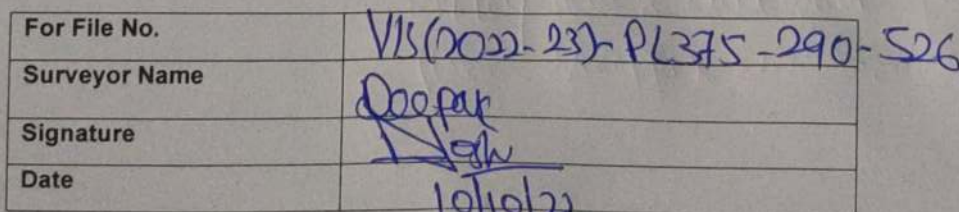 For File No. VIS(2022-23)-PL375-290-526
Surveyor Name Deepak
Signature
Date 10/10/22